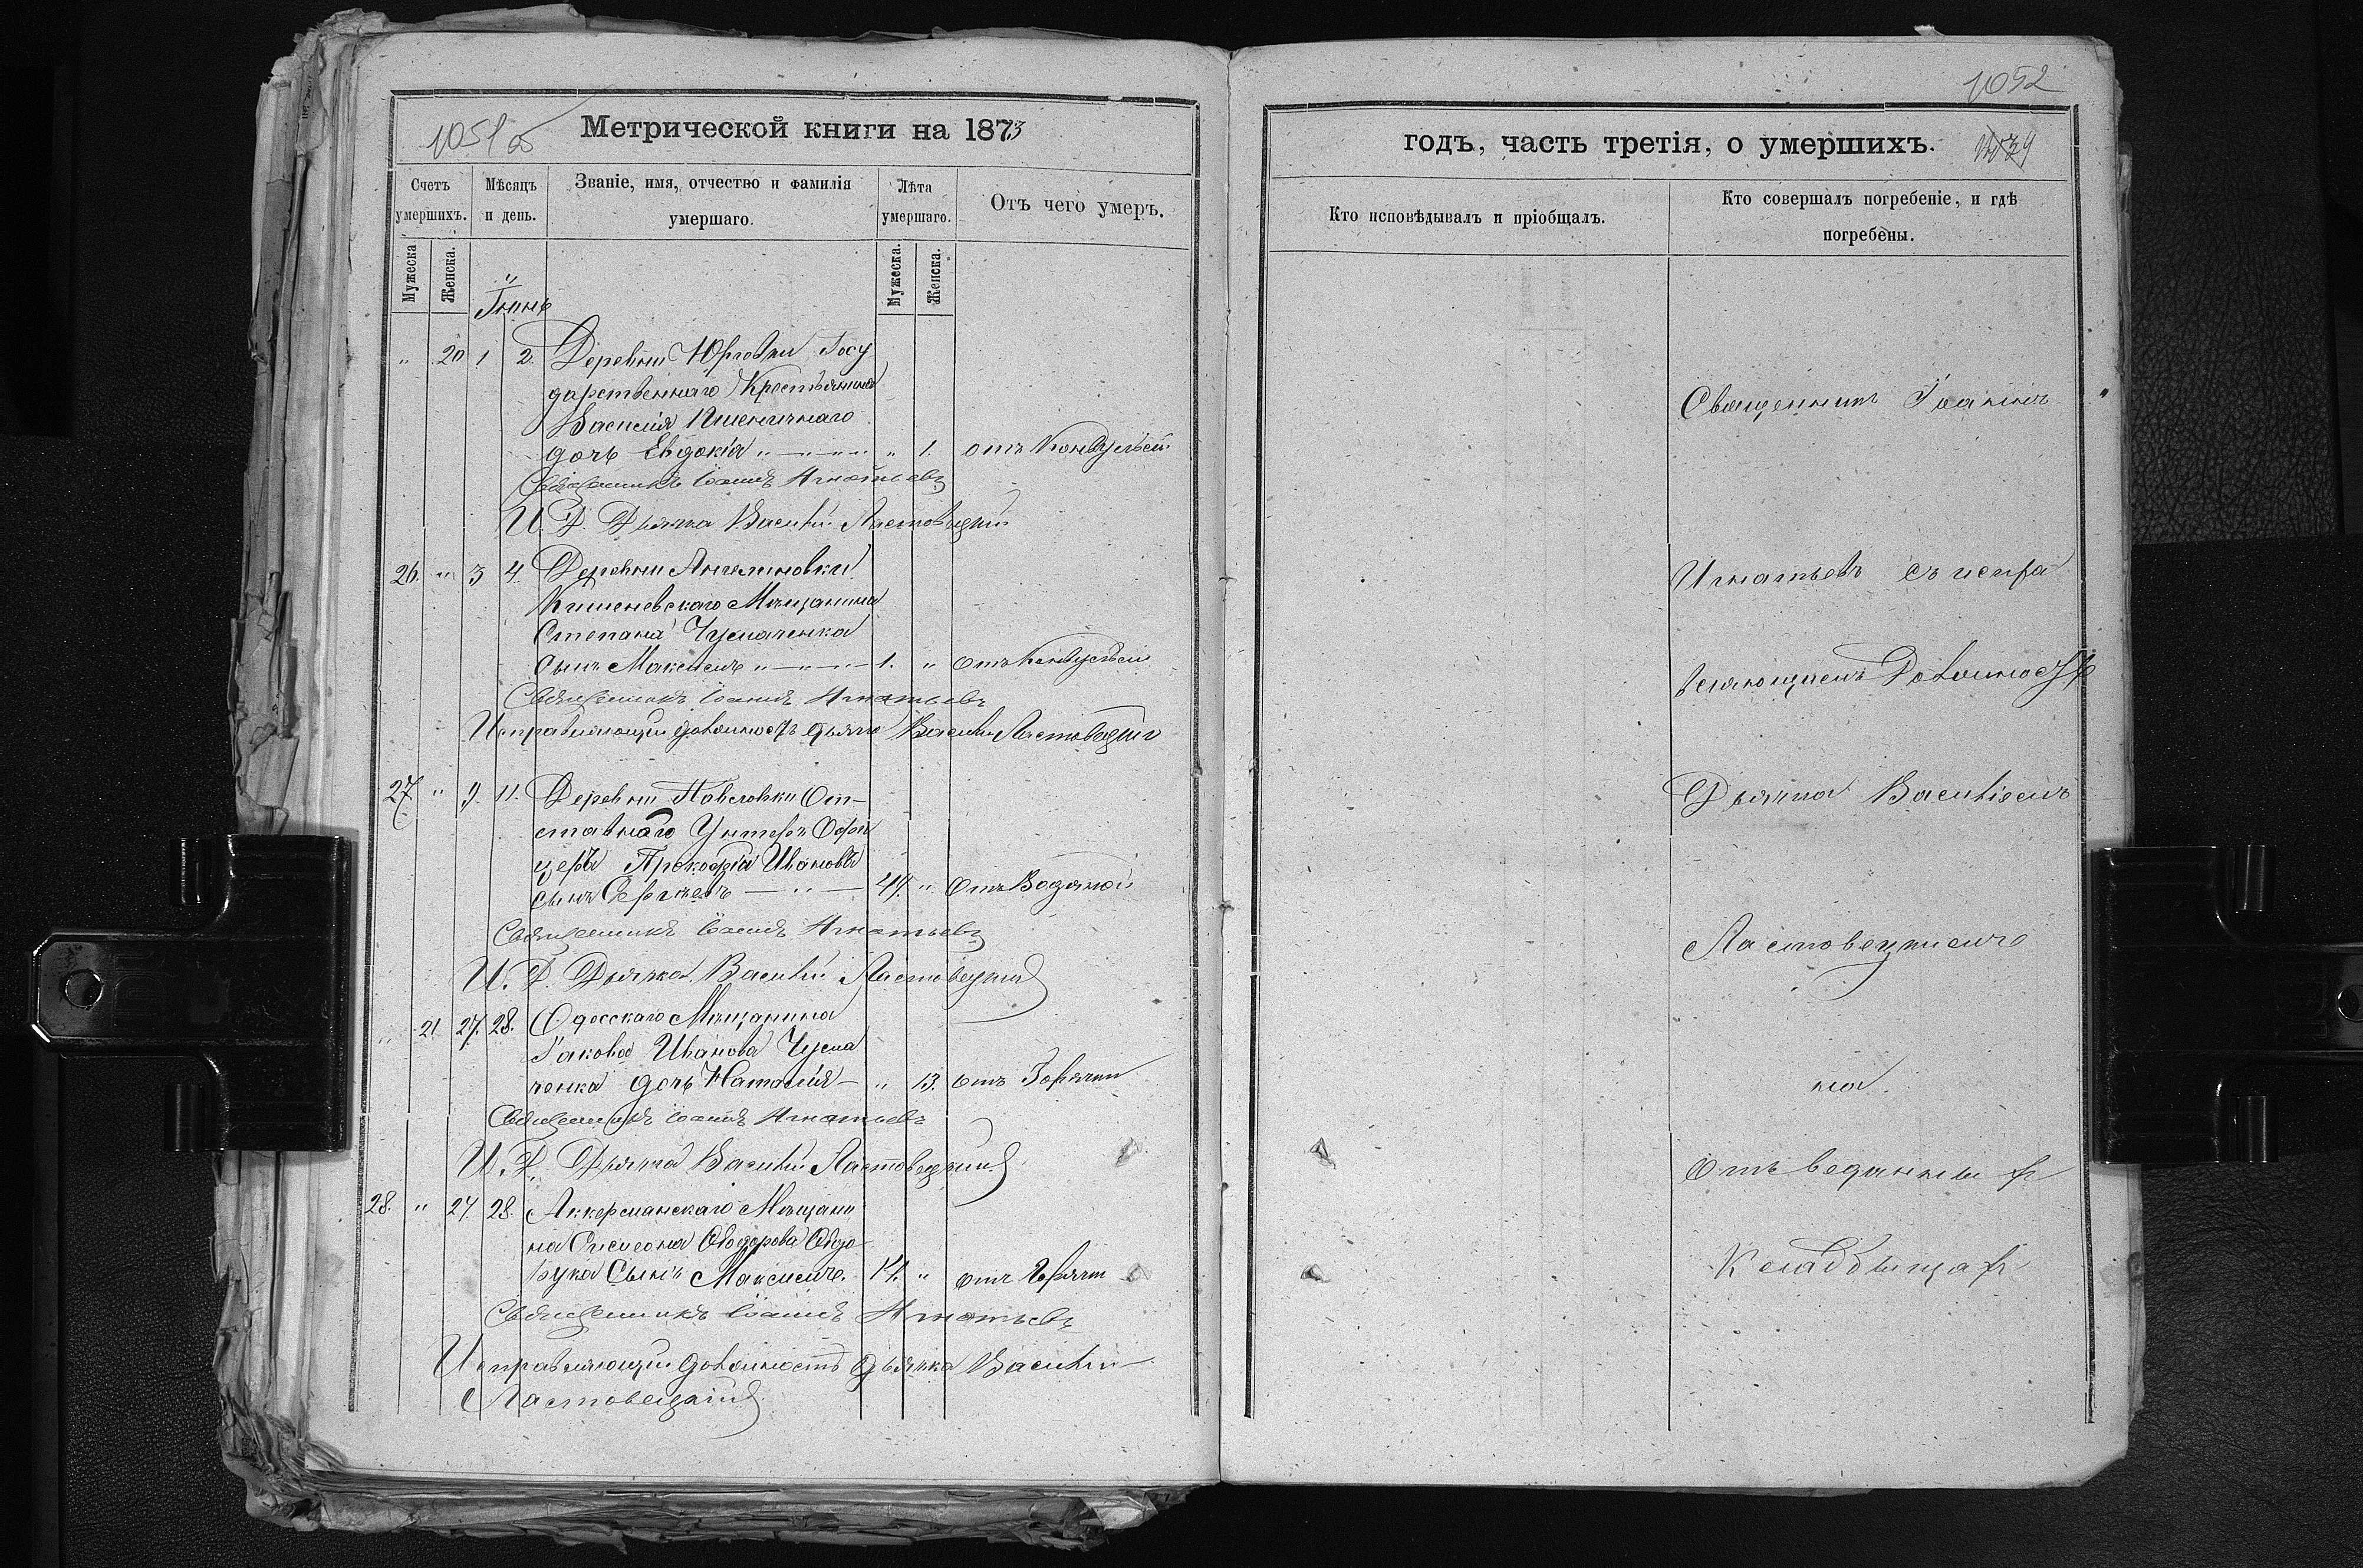 1051 об
Метрической книги на 1873
Счетъ умершихъ.
Мѣсяцъ и день.
Званіе, имя, отчество и фамилія умершаго.
Лѣта умершаго.
Отъ чего умеръ.
Мужеска
Женска.
Мужеска.
Женска.
Іюнь
" 20 1 2. Деревни Юрговки Госу
дарственнаго Крестьянина
Василія Пшеничнаго
дочь Евдокія " 1. отъ Конвульсій
Священникъ Іоаннъ Игнатьевъ
И. Д. Дьячка Василій Ластовецкій
26. " 3 4. Деревни Ангелиновки
Кишеневскаго Мѣщанина
Степана Чумаченка
сынъ Максимъ 1. " отъ Конвульсіи
Священникъ Іоаннъ Игнатьевъ
Исправляющій должность дьячка Василій Ластовецкій
27 " 9. 11. Деревни Павловки От-
ставнаго Унтеръ Офи
цера Прокофія Иванова
сынъ 44. " отъ Водяной
Священникъ Іоаннъ Игнатьевъ
И. Д. Дьячка Василій Ластовецкій
" 21 27. 28. Одесскаго Мѣщанина
Іакова Иванова Чума
ченка дочь Наталія " 13. отъ Горячки
Священникъ Іоаннъ Игнатьевъ
И. Д. Дьячка Василій Ластовецкій
28. " 27. 28. Аккерманскаго Мѣщани
на Симеона Ѳеодорова
сынъ Максимъ. 14. " отъ Горячк
Священникъ Іоаннъ Игнатьевъ
Исправляющій должность дьячка Василій
Ластовецкій
1052
годъ, часть третія, о умершихъ.
Кто исповѣдывалъ и пріобщалъ.
Кто совершалъ погребеніе, и гдѣ погребены.
Священникъ Іоаннъ
Игнатьевъ съ испра
вляющимъ Должность
Дьячка Василіемъ
Ластовецкимъ
на
отведенныхъ
Кладбищахъ